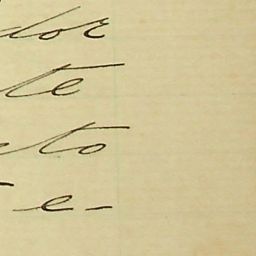 dor
te
to
e-